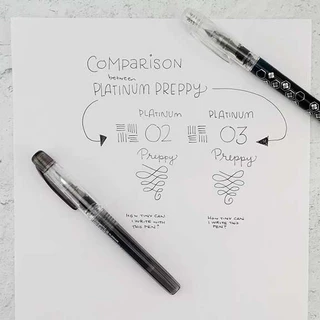 COMPARISON
between
PLATINUM PREPPY
PLATINUM
02
Preppy
HOW TINY CAN
I WRITE WITH
THIS PEN?
PLATINUM
03
Preppy
HOW TINY CAN
I WRITE THIS
PEN?